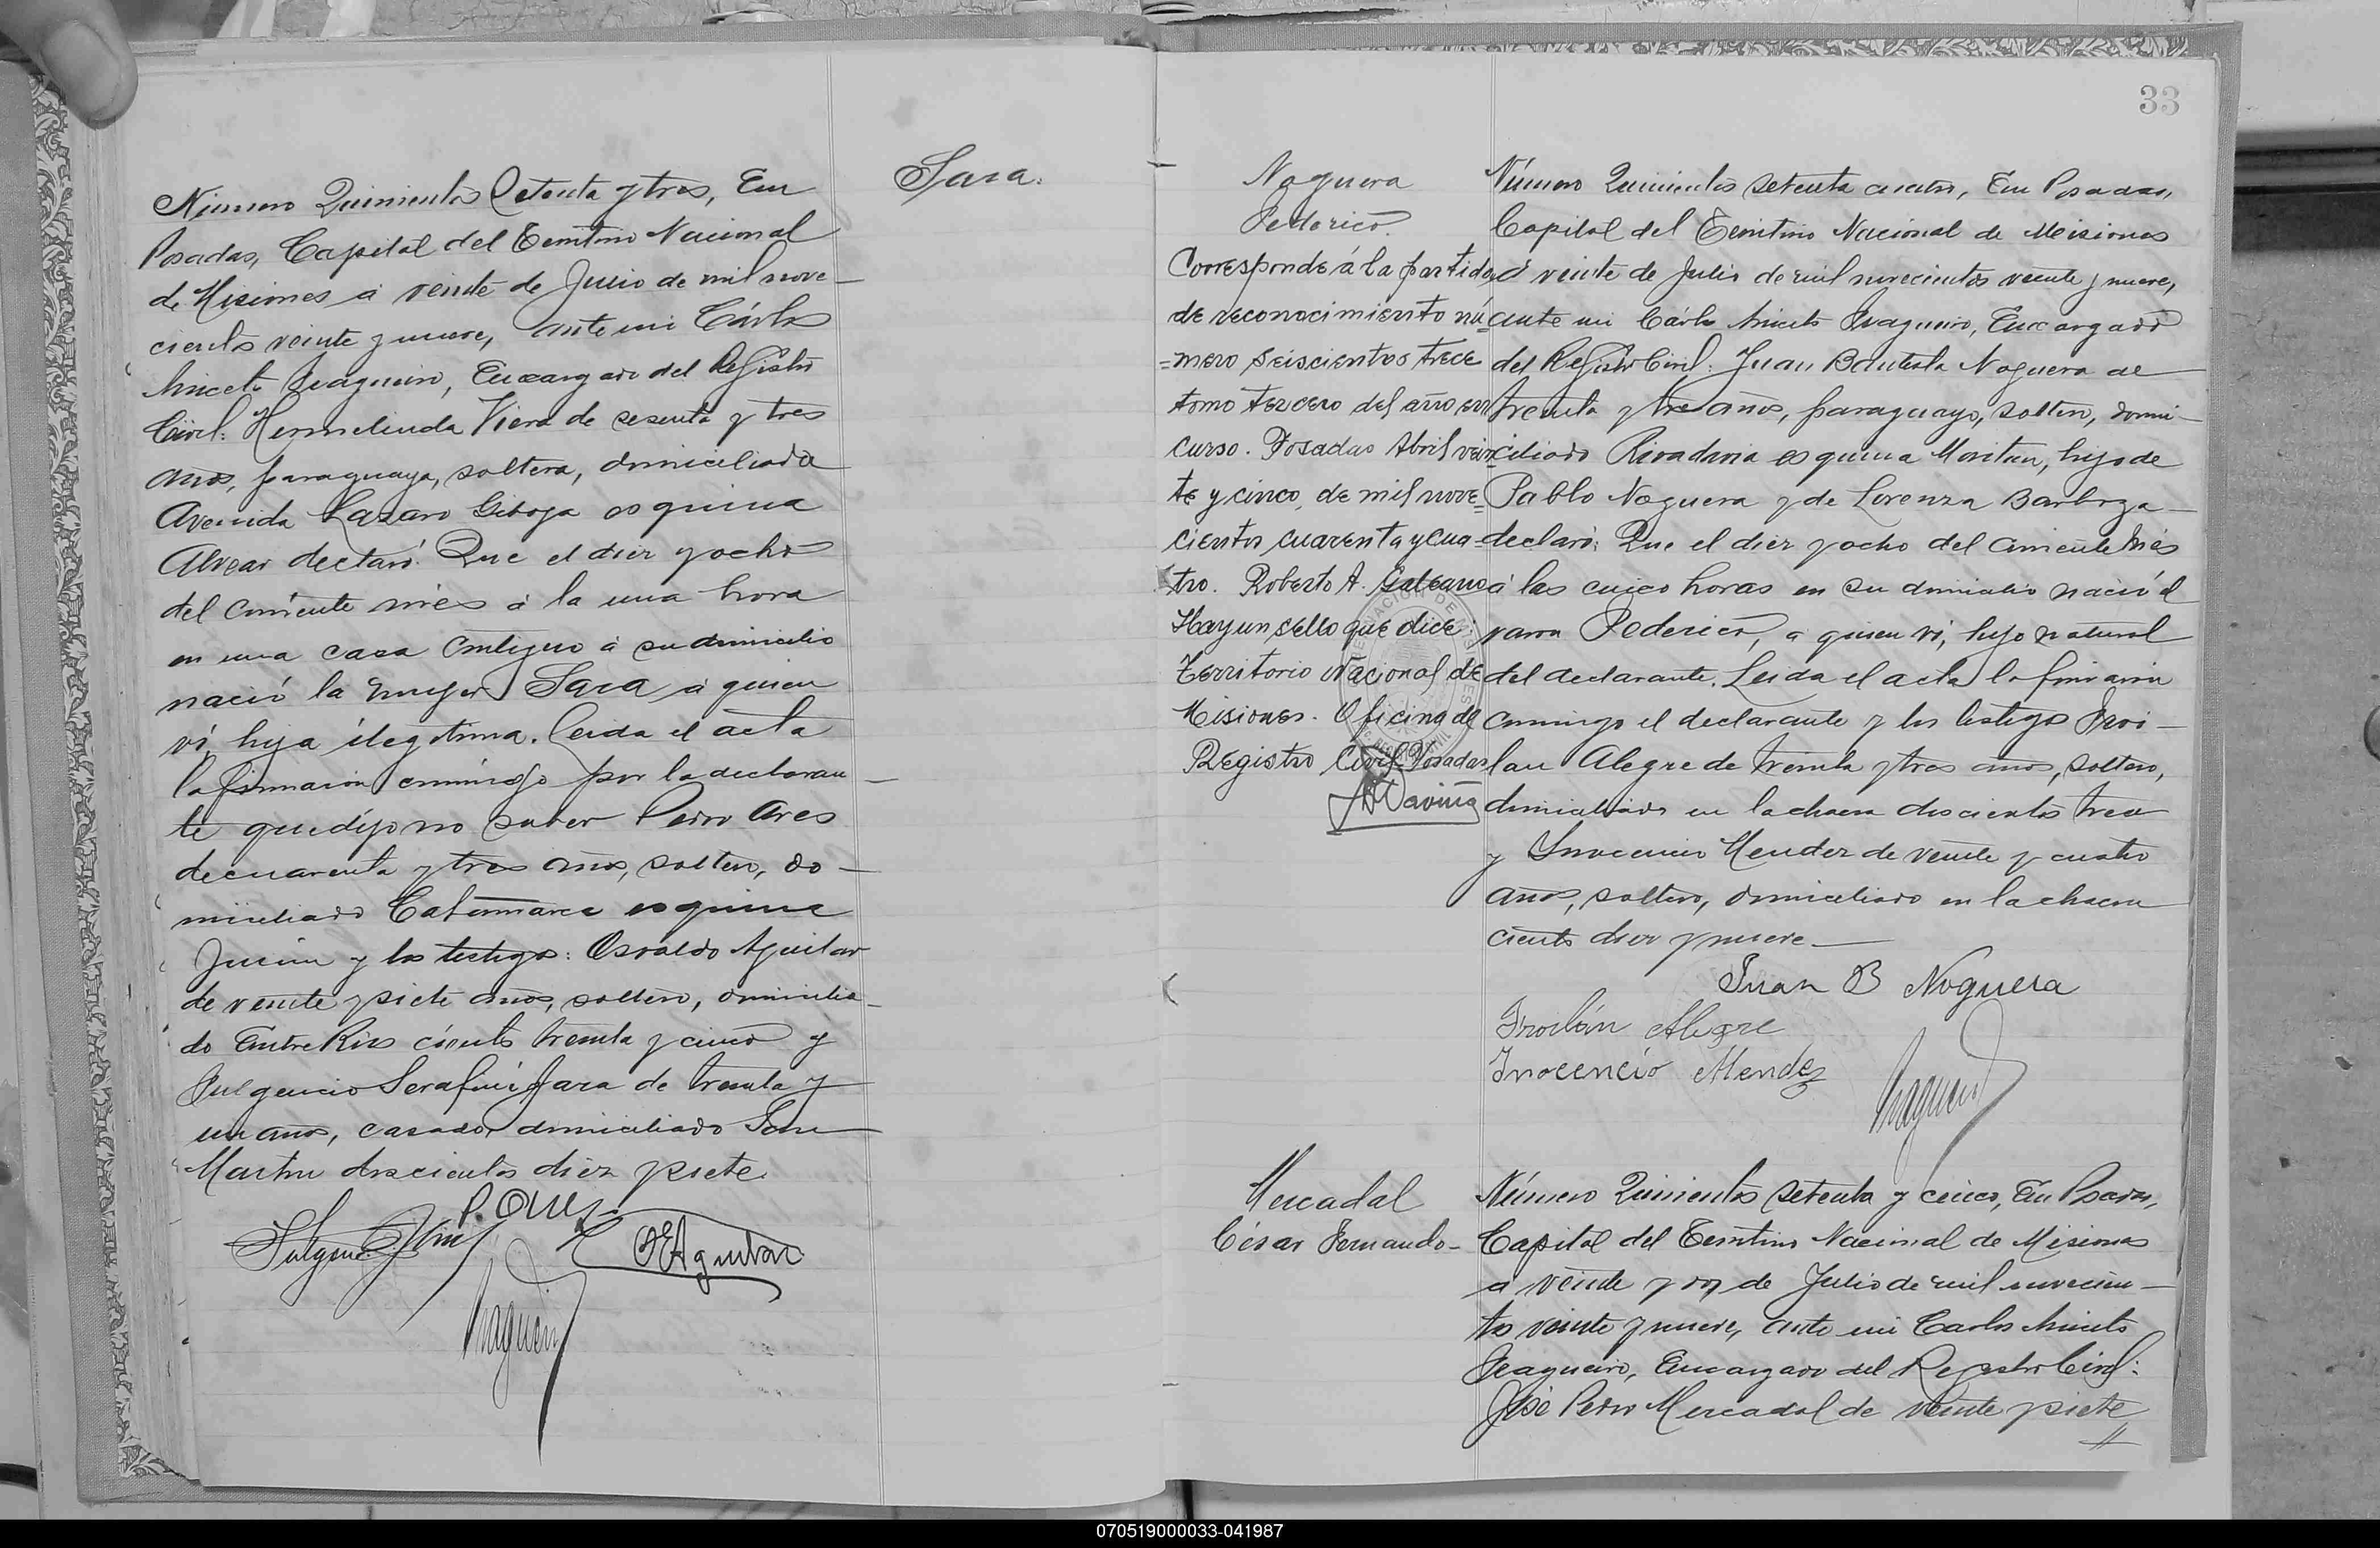 Sara.
Número Quinientos Setenta y tres, En
Posadas, Capital del Territorio Nacional
de Misiones á veinte de Julio de mil nove-
cientos veinte y nueve, ante mi Cárlos
Aniceto Encargado del Registro
Civil: Hermelinda Viera de sesenta y tres
años, paraguaya, soltera, domiciliada
Avenida Lazaro Giboja esquina
Alvear declaró: Que el diez y ocho
del corriente mes á la una hora
en una casa contiguo á su domicilio
nació la mujer Sara á quien
ví, hija ilegitima. Leida el acta
la firmaron conmigo por la declaran-
te que dijo no saber Pedro Ares
de cuarenta y tres años, soltero, do-
miciliado Catamarca esquina
Junin y los testigos: Osvaldo Aguilar
de veinte y siete años, soltero, domicilia-
do Entre Rios ciento treinta y cinco y
Fulgencio Serafin Jara de treinta y
un años, casado, domiciliado San
Martin doscientos diez y siete.
P. Ares
OEAguilar
33
Noguera
Federico.
Corresponde á la partida
de reconocimiento nú=
=mero seiscientos trece
tomo tercero del año en
curso. Posadas Abril vein=
te y cinco, de mil nove=
cientos cuarenta y cua=
tro. Roberto A. Galeano
Hay un sello que dice:
Territorio Nacional de
Misiones. Oficina de
Registro Civil-Posadas
Número Quinientos setenta cuatro, En Posadas,
Capital del Territorio Nacional de Misiones
á veinte de Julio de mil novecientos veinte y nueve,
ante mi Cárlos Aniceto Encargado
del Registro Civil: Juan Bautista Noguera de
treinta y tres años, paraguayo, soltero, domi-
ciliado Rivadavia esquina Santa, hijo de
Pablo Noguera y de Lorenza Barboza
declaró: Que el diez y ocho del corriente mes
á las cinco horas en su domicilio nació el
varon Federico, á quien ví, hijo natural
del declarante. Leida el acta la firmaron
conmigo el declarante y los testigos Froi-
lan Alegre de treinta y tres años, soltero,
domiciliado en la chacra doscientos trece
y Inocencio Mendez de veinte y cuatro
años, soltero, domiciliado en la chacra
ciento diez y nueve.
Juan B Noguera
Froilán Alegre
Inocencio Mendez
Mercadal
César Fernando-
Número Quinientos setenta y cinco, En Posadas,
Capital del Territorio Nacional de Misiones
á veinte y dos de Julio de mil novecien-
tos veinte y nueve, ante mi Carlos Aniceto
Encargado del Registro Civil:
José Pedro Mercadal de veinte y siete
070519000033-041987